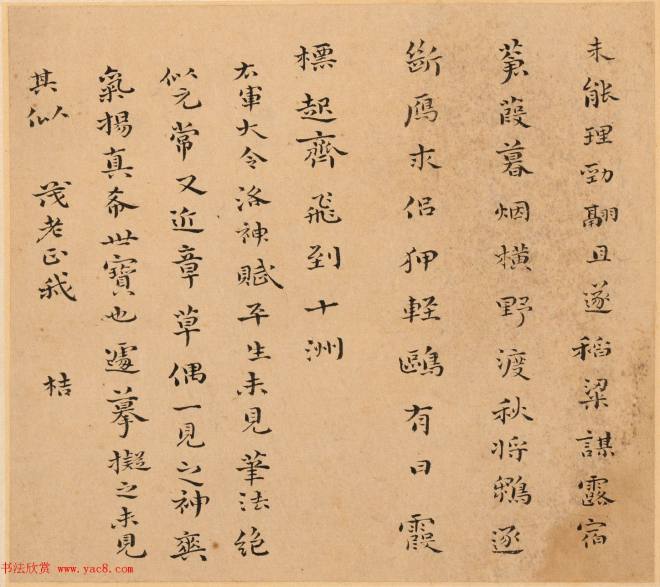 未能理勁翮且遂稻粱謀露宿
葭暮烟橫野渡秋將鶂逐
斷鴈求侶狎輕鷗有日霞
標起齊飛到十洲
右軍大令洛神賦平生未見筆法絕
似元常又近章草偶一見之神爽
氣揚真希世寶也遽摹擬之未見
其似 茂老正我 桔
书法欣赏 www.yac8.com